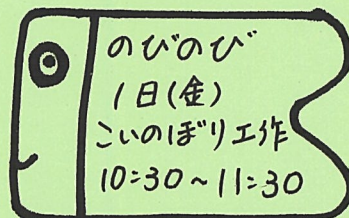 のびのび
1日(金)
こいのぼり工作
10:30~11:30